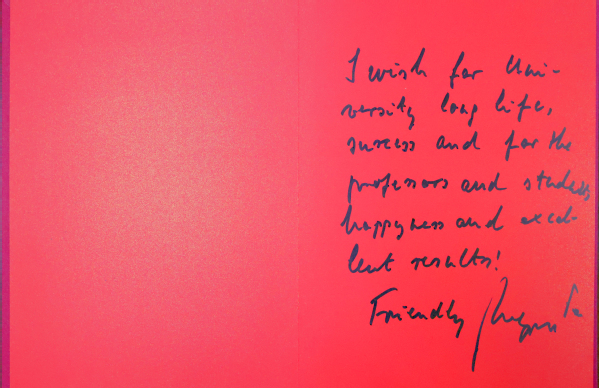 I wish for Uni-
versity long life,
success and for the
professors and students
happyness and excel-
lent results!
Friendly